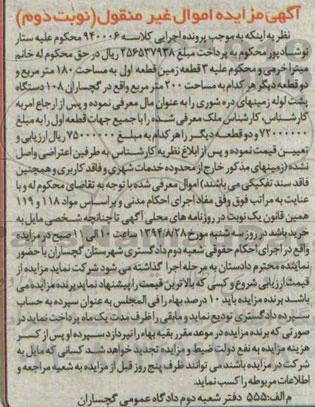 آگهی مزایده اموال غیر منقول (نوبت دوم)
نظر به اینکه به موجب پرونده اجرایی کلاسه ۹۴۰۰۰۶ محکوم علیه ستار
نوشادپور محکوم به پرداخت مبلغ ۲۵۶۵۳۷۹۳۸ ریال در حق محکوم له خانم
میترا خرمی و محکوم علیه ۳ قطعه زمین قطعه اول به مساحت ۱۸۰ متر مربع و
دو قطعه دیگر هر کدام به مساحت ۲۰۰ متر مربع واقع در گچساران ۱۰۸ دستگاه
پشت لوله زمینهای دره شوری را به عنوان مال معرفی نموده و پس از ارجاع امر به
کارشناس، کارشناس ملک معرفی شده را با جمیع جهات قطعه اول را به مبلغ
۷۲۰۰۰۰۰۰ و دو قطعه دیگر را هر کدام به مبلغ ۷۵۰۰۰۰۰۰ ریال ارزیابی و
تعیین قیمت نموده و پس از ابلاغ نظریه کارشناس به طرفین اعتراضی واصل
نشده (زمینهای مذکور خارج از محدوده خدمات شهری و فاقد کاربری و همچنین
فاقد سند تفکیکی می باشند) اموال معرفی شده با توجه به تقاضای محکوم له و با
عنایت به مراتب فوق وفق مفاد اجرای احکام مدنی و بر اساس مواد ۱۱۸ و ۱۱۹
همین قانون یک نوبت در روزنامه های محلی آگهی تا چنانچه شخصی مایل به
خرید باشد در روز سه شنبه مورخ ۱۳۹۴/۸/۲۸ ساعت ۱۰ الی ۱۱ صبح در مزایده
واقع در اجرای احکام حقوقی شعبه دوم دادگستری شهرستان گچساران با حضور
نماینده محترم دادستان به مرحله اجرا گذاشته می شود شرکت نماید مزایده از
قیمت ارزیابی شروع و کسی که بالاترین قیمت را پیشنهاد نماید برنده مزایده می
باشد برنده مزایده باید ۱۰ درصد بهاء را فی المجلس به عنوان سپرده به حساب
سپرده دادگستری تودیع نماید و مابقی را ظرف مدت یک ماه پرداخت نماید در
صورتی که برنده مزایده در موعد مقرر بقیه بهاء را نپردازد سپرده او پس از کسر
هزینه مزایده به نفع دولت ضبط و مزایده تجدید خواهد شد کسانی که مایل به
شرکت در مزایده باشند می توانند ظرف پنج روز قبل از مزایده به شعبه مراجعه و
اطلاعات مربوطه را کسب نماید
م الف: ۵۵۵ دفتر شعبه دوم دادگاه عمومی گچساران